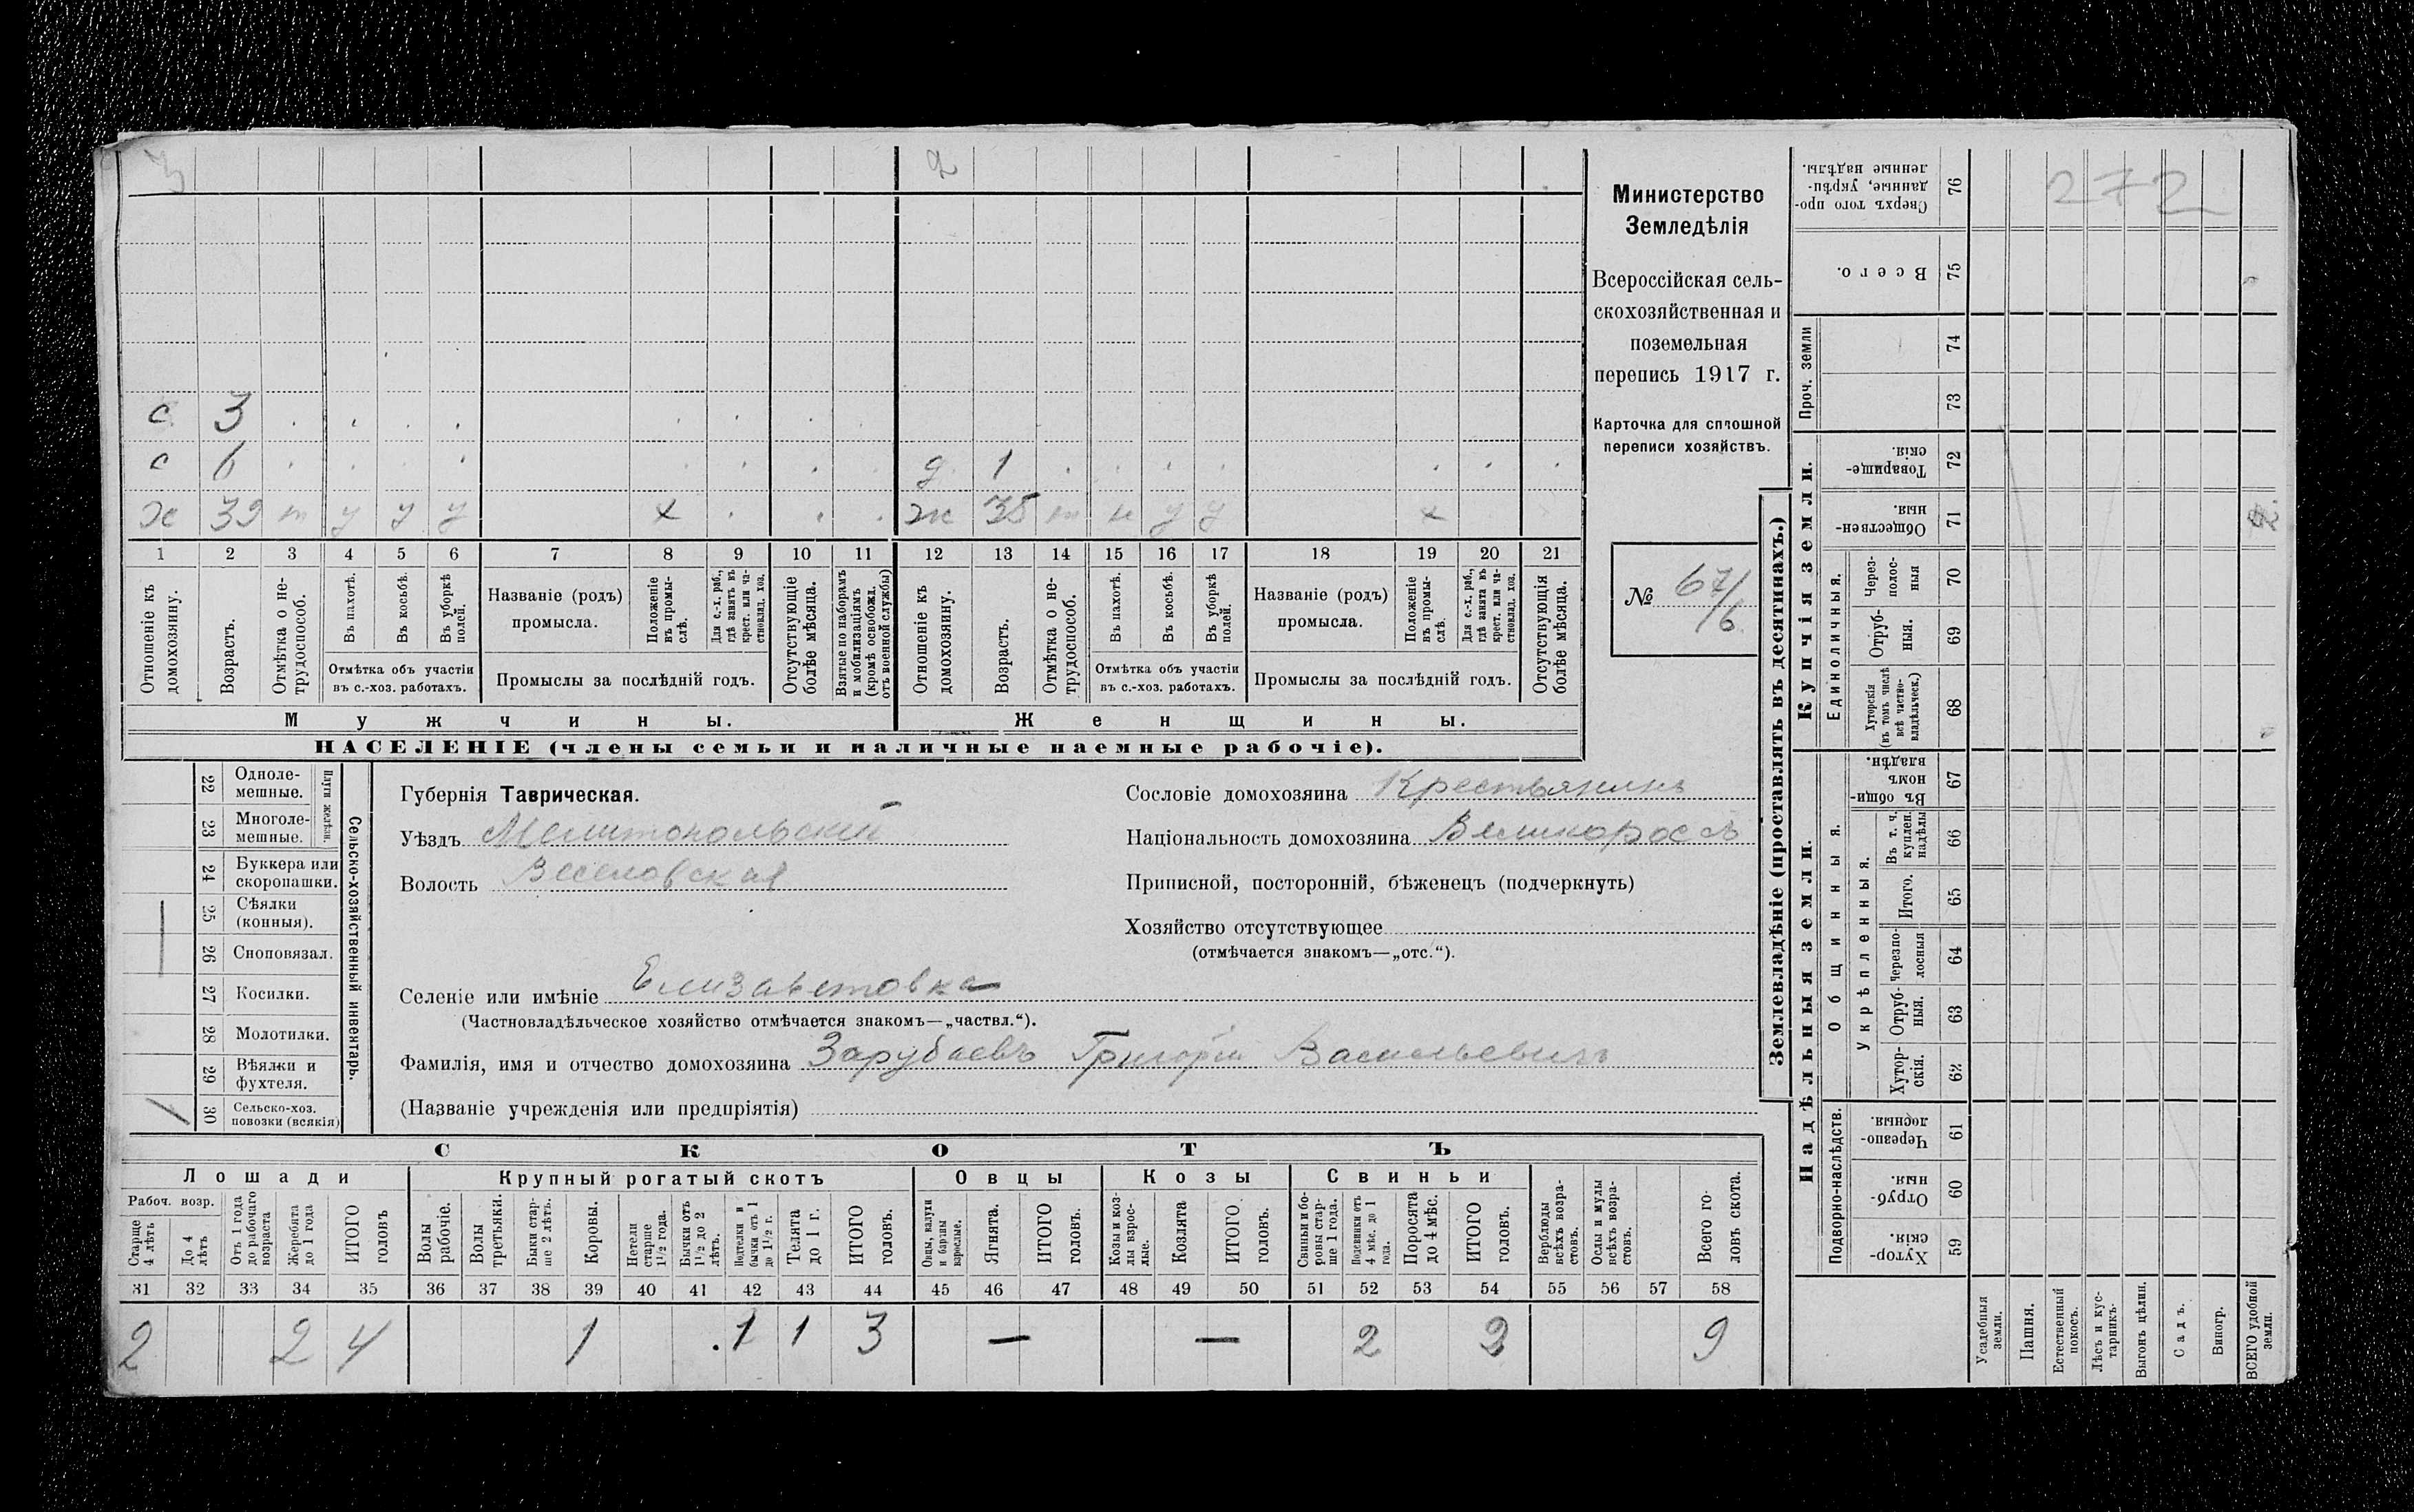 3 2
с 3
с 6 д 1
х 39 т у у у х ж 35 т н у у х
1 2 3 4 5 6 7 8 9 10 11 12 13 14 15 16 17 18 19 20 21
Отношеніе къ домохозяину.
Возрастъ.
Отмѣтка о не-
трудоспособ.
Въ пахотѣ.
Въ косьбѣ.
Въ уборкѣ
полей.
Отмѣтка объ участіи
въ с.-хоз. работахъ.
Названіе (родъ)
промысла.
Положеніе
въ промы-
слѣ.
Для с.-х. раб.,
гдѣ занятъ въ
крест. или ча-
стновлад. хоз.
Промыслы за послѣдній годъ.
Отсутствующіе
болѣе мѣсяца.
Взятые по наборамъ
и мобилизаціямъ
(кромѣ освобожд.
отъ военной службы)
Отношеніе къ
домохозяину.
Возрастъ.
Отмѣтка о не-
трудоспособ.
Въ пахотѣ.
Въ косьбѣ.
Въ уборкѣ
полей.
Отмѣтка объ участіи
въ с.-хоз. работахъ.
Названіе (родъ)
промысла.
Положеніе
въ промы-
слѣ.
Для с.-х. раб.,
гдѣ занята въ
крест. или ча-
стновлад. хоз.
Промыслы за послѣдній годъ.
Отсутствующія
болѣе мѣсяца.
Мужчины. Женщины.
НАСЕЛЕНІЕ (члены семьи и наличные наемные рабочіе).
Министерство
Земледѣлія
Всероссійская сель-
скохозяйственная и
поземельная
перепись 1917 г.
Карточка для сплошной
переписи хозяйствъ.
№ 67/6
22 Одноле-
мешные.
23 Многоле-
мешные.
Плуги желѣзн.
24 Буккера или
скоропашки.
25 Сѣялки
(конныя).
26 Сноповязал.
27 Косилки.
28 Молотилки.
29 Вѣялки и
фухтеля.
1 30 Сельско-хоз.
повозки (всякія)
Сельско-хозяйственный инвентарь.
Губернія Таврическая.
Уѣздъ Мелитопольскій
Волость Веселовская
Сословіе домохозяина Крестьянинъ
Національность домохозяина Великороссъ
Приписной, посторонній, бѣженецъ (подчеркнуть)
Хозяйство отсутствующее
(отмѣчается знакомъ—„отс.“).
Селеніе или имѣніе Елизаветовка
(Частновладѣльческое хозяйство отмѣчается знакомъ—„частвл.“).
Фамилія, имя и отчество домохозяина Зарубаевъ Григорій Васильевичъ
(Названіе учрежденія или предпріятія)
СКОТЪ
Лошади Крупный рогатый скотъ Овцы Козы Свиньи
Рабоч. возр.
Старше
4 лѣтъ
До 4
лѣтъ
Отъ 1 года
до рабочаго
возраста
Жеребята
до 1 года
ИТОГО
головъ
Волы
рабочіе.
Волы
третьяки.
Быки стар-
ше 2 лѣтъ.
Коровы.
Нетели
старше
1½ года.
Бычки отъ
1½ до 2
лѣтъ.
Подтелки и
бычки отъ 1
до 1½ г.
Телята
до 1 г.
ИТОГО
головъ.
Овцы, валухи
и бараны
взрослые.
Ягнята.
ИТОГО
головъ.
Козы и коз-
лы взрос-
лые.
Козлята
ИТОГО
головъ.
Свиньи и бо-
ровы стар-
ше 1 года.
Подсвинки отъ
4 мѣс. до 1
года.
Поросята
до 4 мѣс.
ИТОГО
головъ.
Верблюды
всѣхъ возра-
стовъ.
Ослы и мулы
всѣхъ возра-
стовъ.
Всего го-
ловъ скота.
31 32 33 34 35 36 37 38 39 40 41 42 43 44 45 46 47 48 49 50 51 52 53 54 55 56 57 58
2 2 4 1 1 1 3 — — 2 2 9
Землевладѣніе (проставлять въ десятинахъ.)
272
Сверхъ того про-
данные, укрѣп-
ленные надѣлы.
76
Всего.
75
Проч. земли
74
73
Купчія земли.
Товарище-
скія
72
Обществен-
ныя.
71
Единоличныя.
Через-
полос-
ныя
70
Отруб-
ныя.
69
Хуторскія
(въ томъ числѣ
всѣ частно-
владѣльческ.)
68
Надѣльныя земли.
Общинныя.
Въ общи-
номъ
владѣн.
67
Укрѣпленныя.
Въ т. ч.
куплен.
надѣлы
66
Итого.
65
Черезпо-
лосныя
64
Отруб-
ныя.
63
Хутор-
скія.
62
Подворно-наслѣдств.
Черезпо-
лосныя.
61
Отруб-
ныя.
60
Хутор-
скія.
59
Усадебныя
земли.
Пашня.
Естественный
покосъ.
Лѣсъ и кус-
тарникъ.
Выгонъ цѣлин.
Садъ.
Виногр.
ВСЕГО удобной
земли.